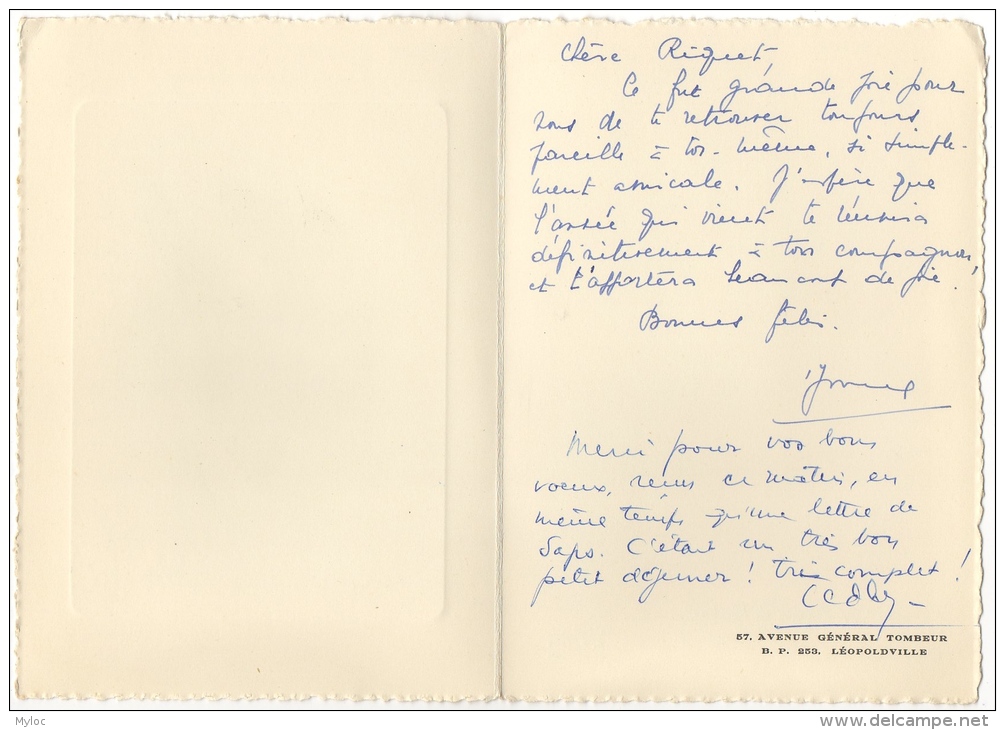 Chère Riquet,
Ce fut grande joie pour
nous de te retrouver toujours
pareille à toi-même, si simple-
ment amicale. J'espère que
l'année qui vient te réunira
définitivement à ton compagnon,
et t'apportera beaucoup de joie.
Bonnes fêtes.
Yvonne
Merci pour vos bons
voeux, reçus ce matin, en
même temps qu'une lettre de
Saps. C'était un très bon
petit déjeuner! très complet!
57. AVENUE GÉNÉRAL TOMBEUR
B. P. 253. LÉOPOLDVILLE
Myloc
www.delcampe.net